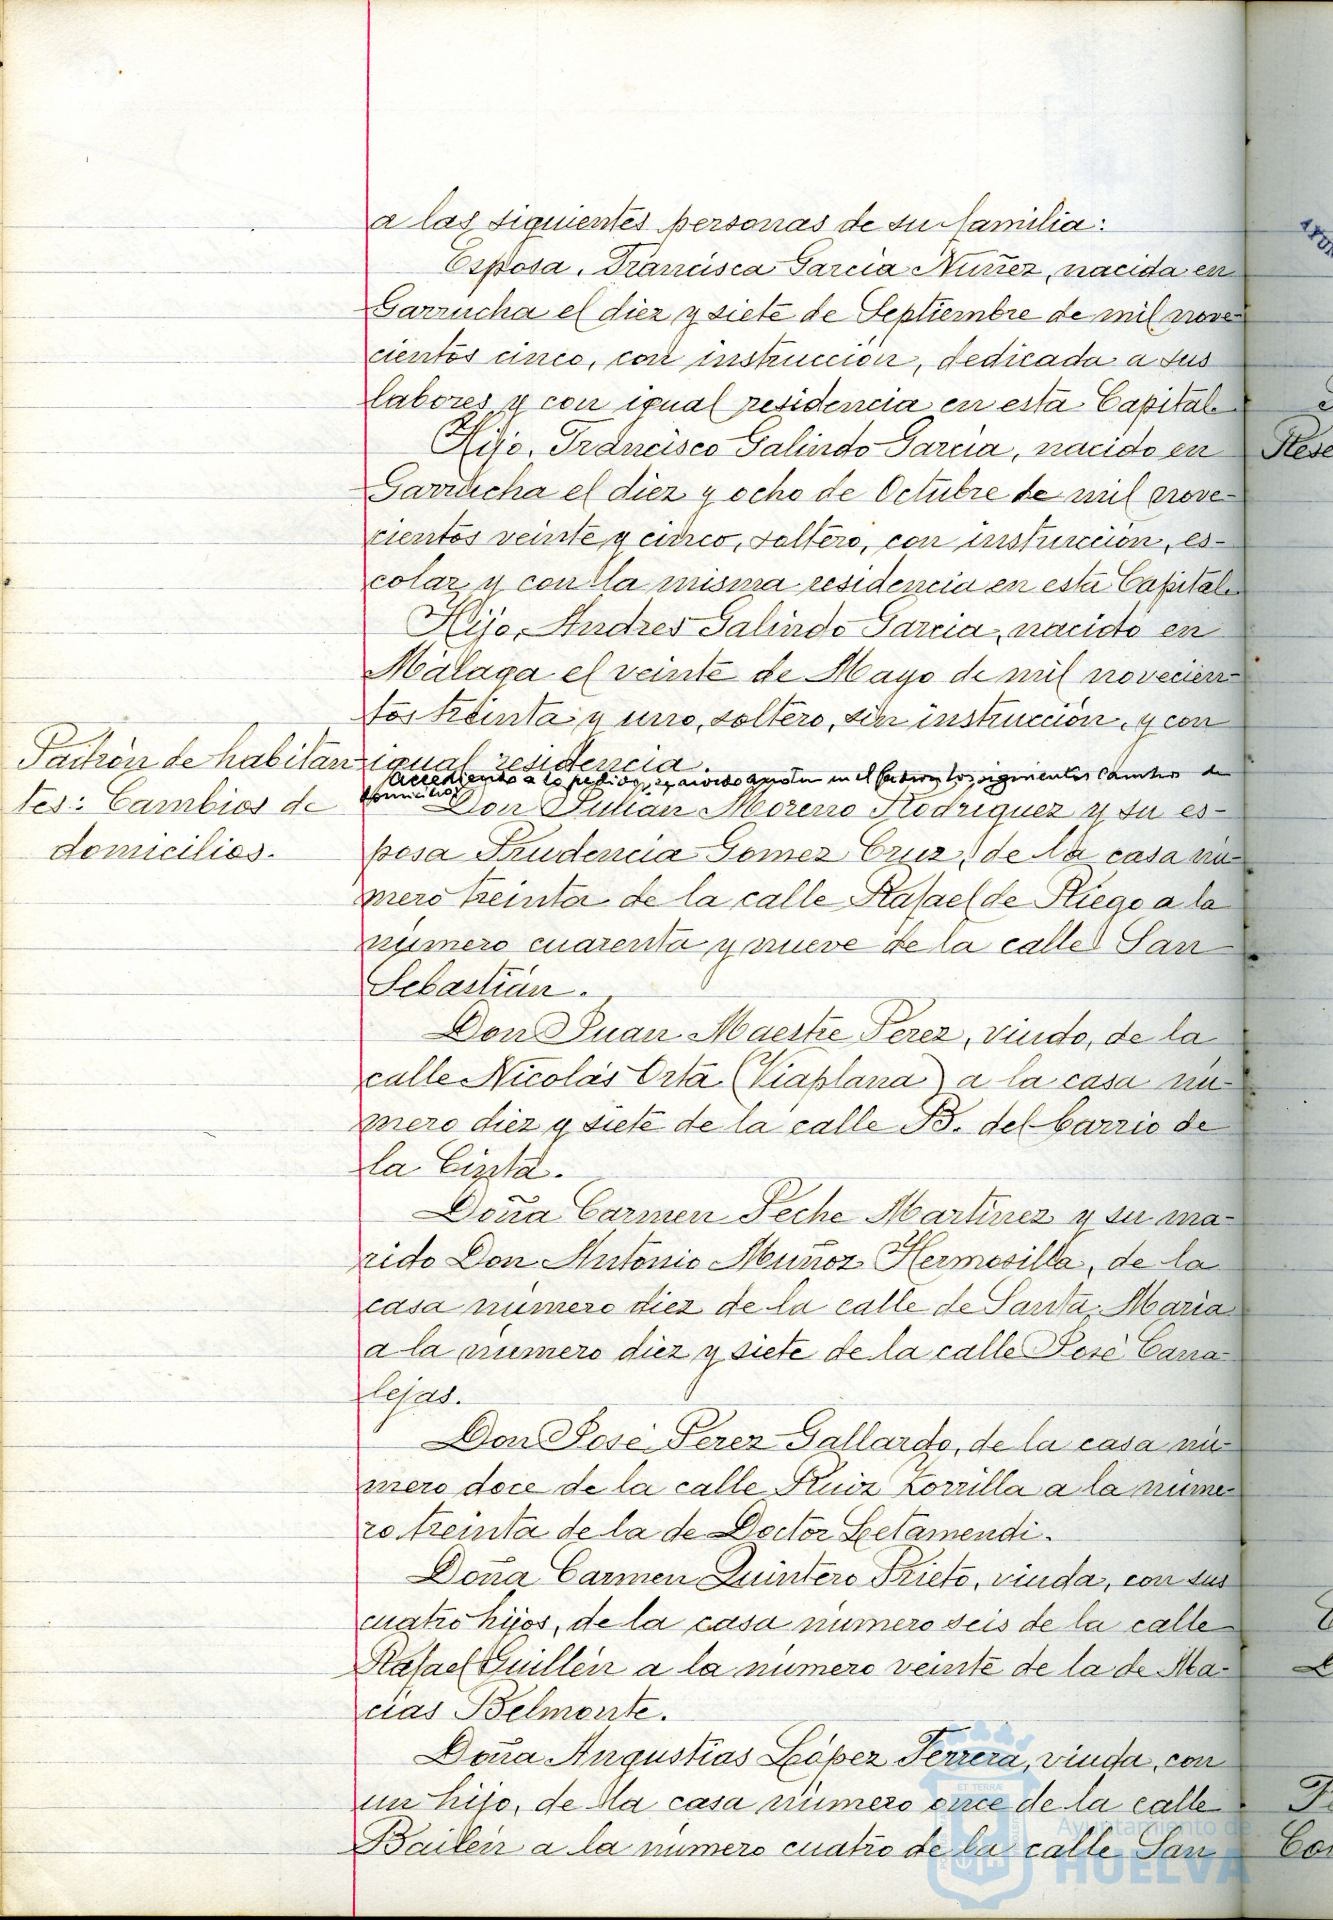 a las siguientes personas de su familia:
Esposa, Francisca Garcia Nuñez, nacida en
Garrucha el diez y siete de Septiembre de mil nove-
cientos cinco, con instrucción, dedicada a sus
labores y con igual residencia en esta Capital.
Hijo, Francisco Galindo Garcia, nacido en
Garrucha el diez y ocho de Octubre de mil nove-
cientos veinte y cinco, soltero, con instrucción, es-
colar y con la misma residencia en esta Capital.
Hijo, Andres Galindo Garcia, nacido en
Málaga el veinte de Mayo de mil novecien-
tos treinta y uno, soltero, sin instrucción, y con
igual residencia.
Padrón de habitan-
tes: Cambios de
domicilios.
Accediendo a lo pedido, se acordó anotar en el Padron los siguientes cambios de
domicilios
Don Julian Moreno Rodriguez y su es-
posa Prudencia Gomez Cruz, de la casa nú-
mero treinta de la calle Rafael de Riego a la
número cuarenta y nueve de la calle San
Sebastián.
Don Juan Maestre Perez, viudo, de la
calle Nicolás Orta (Viaplana) a la casa nú-
mero diez y siete de la calle B. del barrio de
la Cinta.
Doña Carmen Peche Martinez y su ma-
rido Don Antonio Muñoz Hermosilla, de la
casa número diez de la calle de Santa Maria
a la número diez y siete de la calle José Cana-
lejas.
Don José Perez Gallardo, de la casa nú-
mero doce de la calle Ruiz Zorrilla a la núme-
ro treinta de la de Doctor Letamendi.
Doña Carmen Quintero Prieto, viuda, con sus
cuatro hijos, de la casa número seis de la calle
Rafael Guillén a la número veinte de la de Ma-
cias Belmonte.
Doña Angustias López Ferrera, viuda, con
un hijo, de la casa número once de la calle
Bailén a la número cuatro de la calle San
Ayuntamiento de
HUELVA